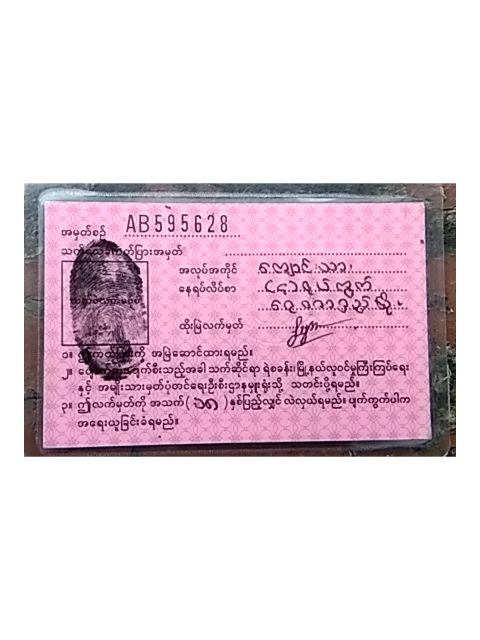 အမှတ်စဉ် AB595628
သက်သေခံကတ်ပြားအမှတ်
အလုပ်အကိုင် ကျောင်းသား
နေရပ်လိပ်စာ
ထိုးမြဲလက်မှတ်
၁။ ဤကတ်ပြားကို အမြဲဆောင်ထားရမည်။
၂။ ပျောက်ဆုံးပျက်စီးသည့်အခါ သက်ဆိုင်ရာ ရဲစခန်း၊ မြို့နယ်လူဝင်မှုကြီးကြပ်ရေး
နှင့် အမျိုးသားမှတ်ပုံတင်ရေးဦးစီးဌာနမှူးရုံးသို့ သတင်းပို့ရမည်။
၃။ ဤလက်မှတ်ကို အသက် ( ၁၈ ) နှစ်ပြည့်လျှင် လဲလှယ်ရမည်။ ပျက်ကွက်ပါက
အရေးယူခြင်းခံရမည်။